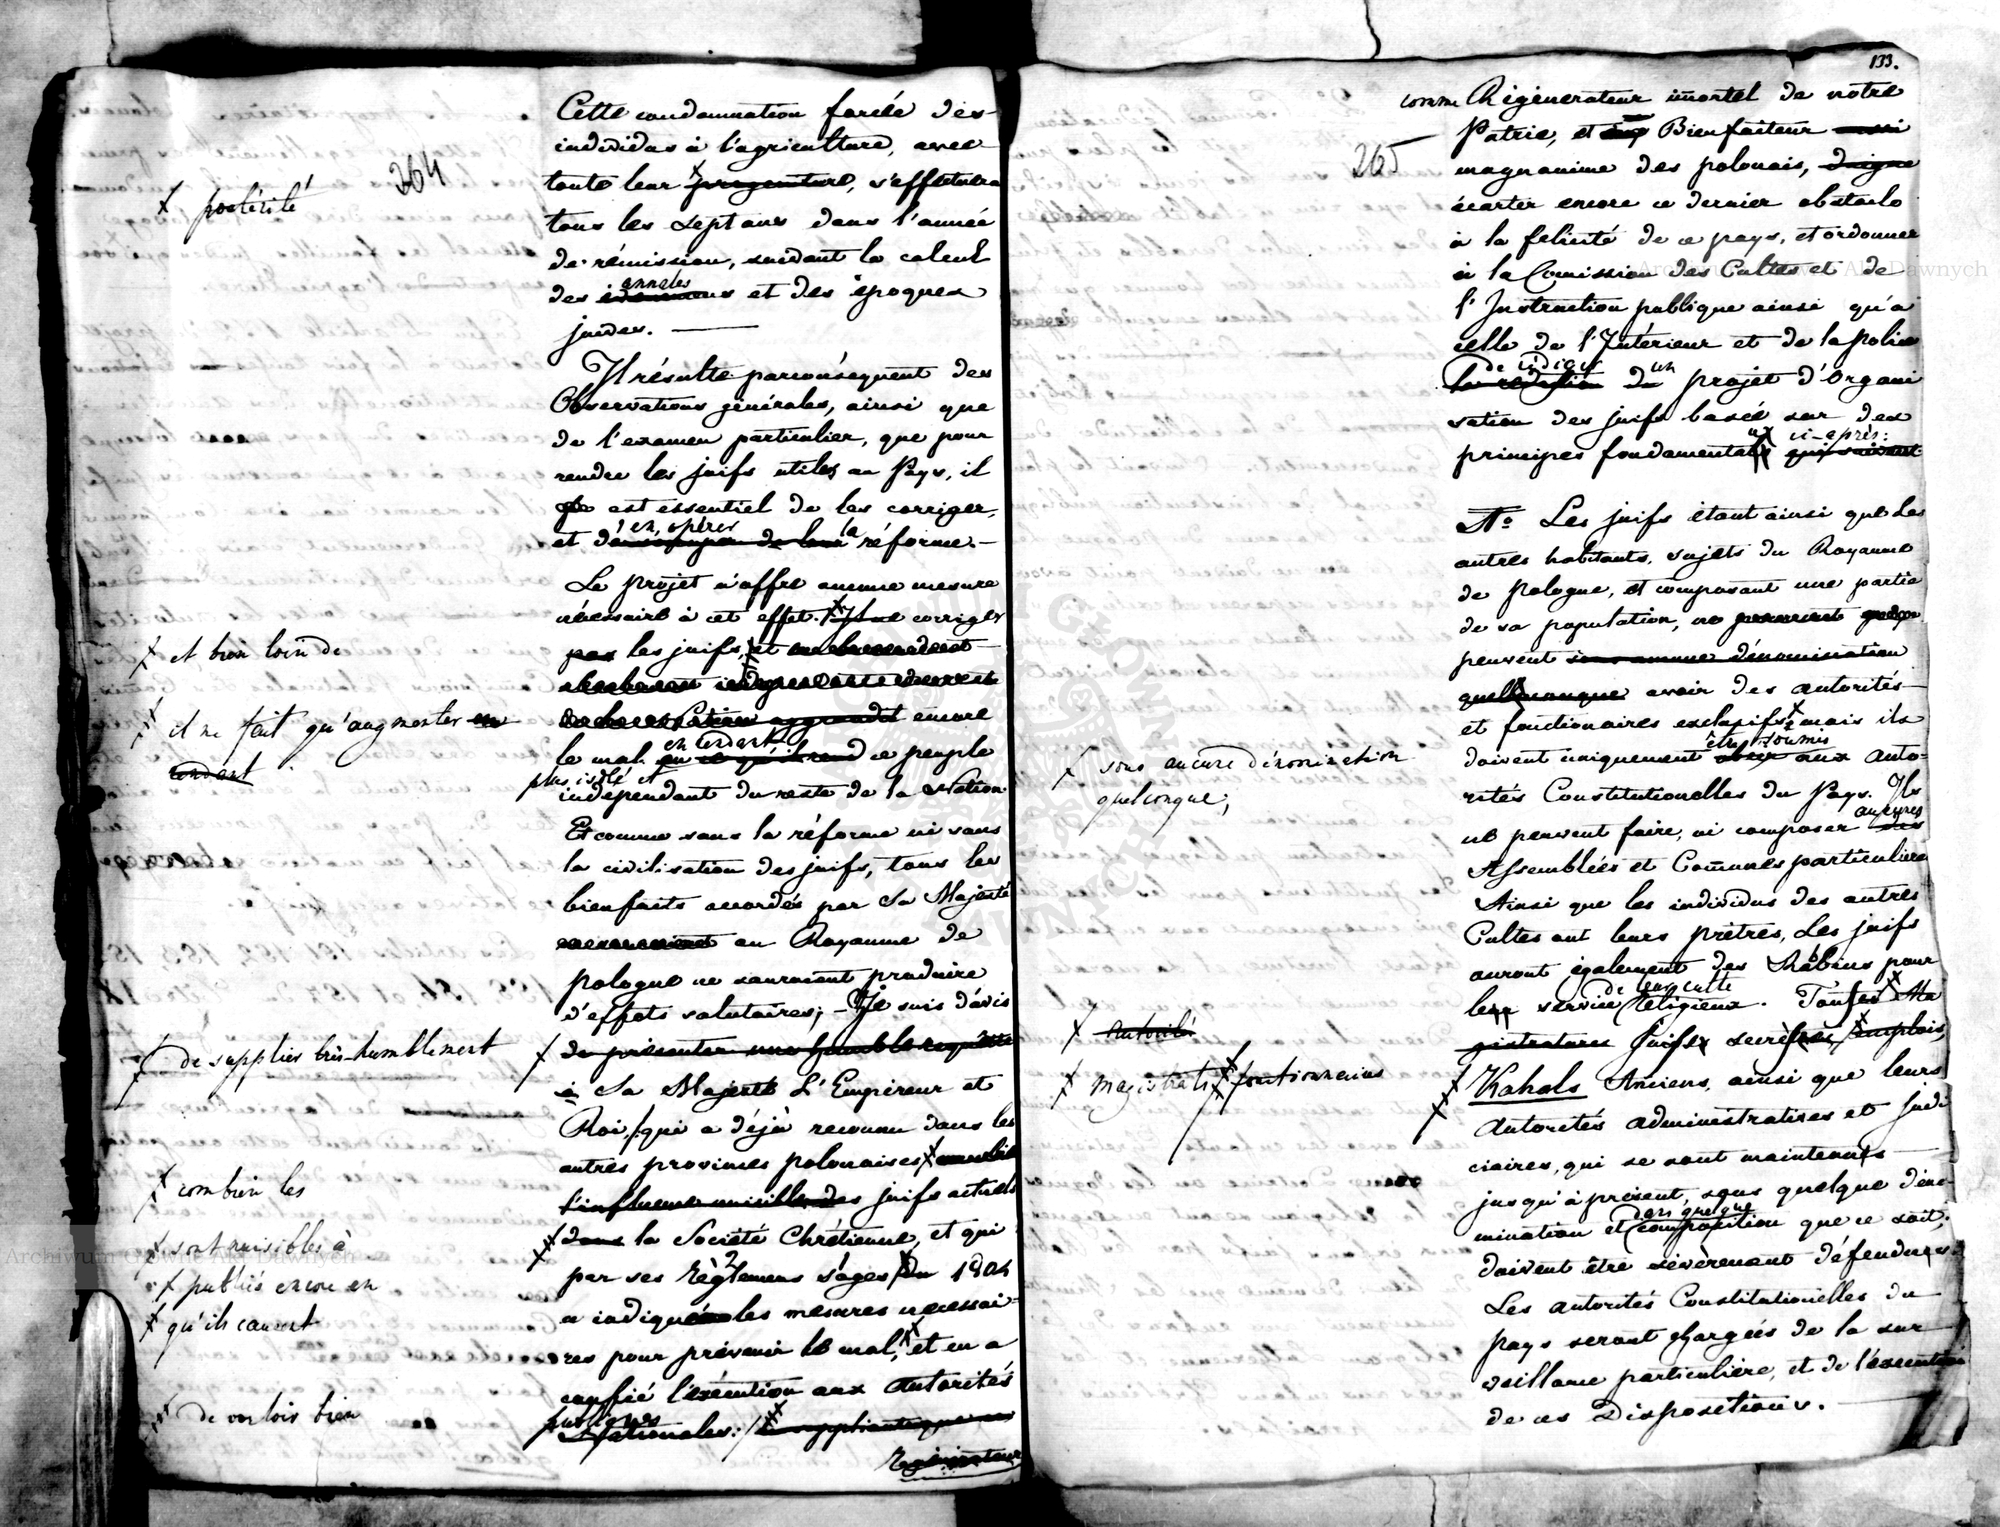 264
Cette condamnation forcée des
individus à l'agriculture, avec
toute leur progeniture, s'effetuera
× postérité
tous les sept ans dans l'année
de rémission, suivant le calcul
annales
des et des époques
juives.
Il résulte par conséquent des
Observations générales, ainsi que
de l'examen particulier, que pour
rendre les juifs utiles au Pays, il
est essentiel de les corriger,
en opérer la
et d' réforme.—
Le projet n'offre aucune mesure
nécessaire à cet effet. corriger
× et bien loin de
pas les juifs, et
× il ne fait qu'augmenter en
rendant
aggrandit encore
en rendant
le mal. ce peuple
plus isolé et
independant du reste de la Nation
Et comme sans la réforme ni sans
la civilisation des juifs, tous les
bienfaits accordés par Sa Majesté
au Royaume de
pologne ne sauroient produire
d'effets salutaires; — Je suis d'avis
× de supplier très-humblement
de présenter une humble requête
à Sa Majesté L'Empereur et
Roi, qui a déjà reconnu dans les
autres provinces polonaises
× combien les
l'influence nuisible des juifs actuels
× sont nuisibles à
dans la Société Chrétienne, et qui
× publiés encore en
par ses Règlemens sages du 1804
× qu'ils causent
a indiqué les mesures necessai-
res pour prévenir le mal, et en a
confié l'exécution aux Autorités
×× de vouloir bien
publiques
Nationales:
133.
265
comme Régénerateur imortel de notre
Patrie, et Bienfaiteur aussi
magnanime des polonais, daigne
écarter encore ce dernier obstacle
à la felicité de ce pays, et ordonner
à la Comission des Cultes et de
l'Instruction publique ainsi qu'à
celle de l'Intérieur et de la police
de rédiger un
la rédaction du projet d'Organi
sation des juifs basée sur des
ux ci-après:
principes fondamentals qui suivent
A° Les juifs étant ainsi que les
autres habitants, sujets du Royaume
de pologne, et composant une partie
de sa population, ne
peuvent sous aucune dénomination
quelconque avoir des autorités
et fonctionaires exclusifs, mais ils
× sous aucune dénomination
quelconque;
être soumis
doivent uniquement aux auto-
rités Constitutionelles du Pays. Ils
aucunes
ne peuvent faire, ni composer des
Assemblées et Comunes particulieres
Ainsi que les individus des autres
Cultes ont leurs prêtres, Les juifs
auront également des Rabins pour
de leur culte
leur service religieux. Toutes Ma
× Autorité
gistratures Juifs emplois,
× Magistrats × fonctionnaires
Kahals Anciens, ainsi que leurs
Autorités administratives et Judi
ciaires, qui se sont maintenus
jusqu'à présent, sous quelque déno-
dans quelque
mination et composition que ce soit,
doivent être sevèrement défendues.
Les autorités Constitutionelles du
pays seront chargées de la sur
veillance particulière, et de l'execution
de ces Dispositions.